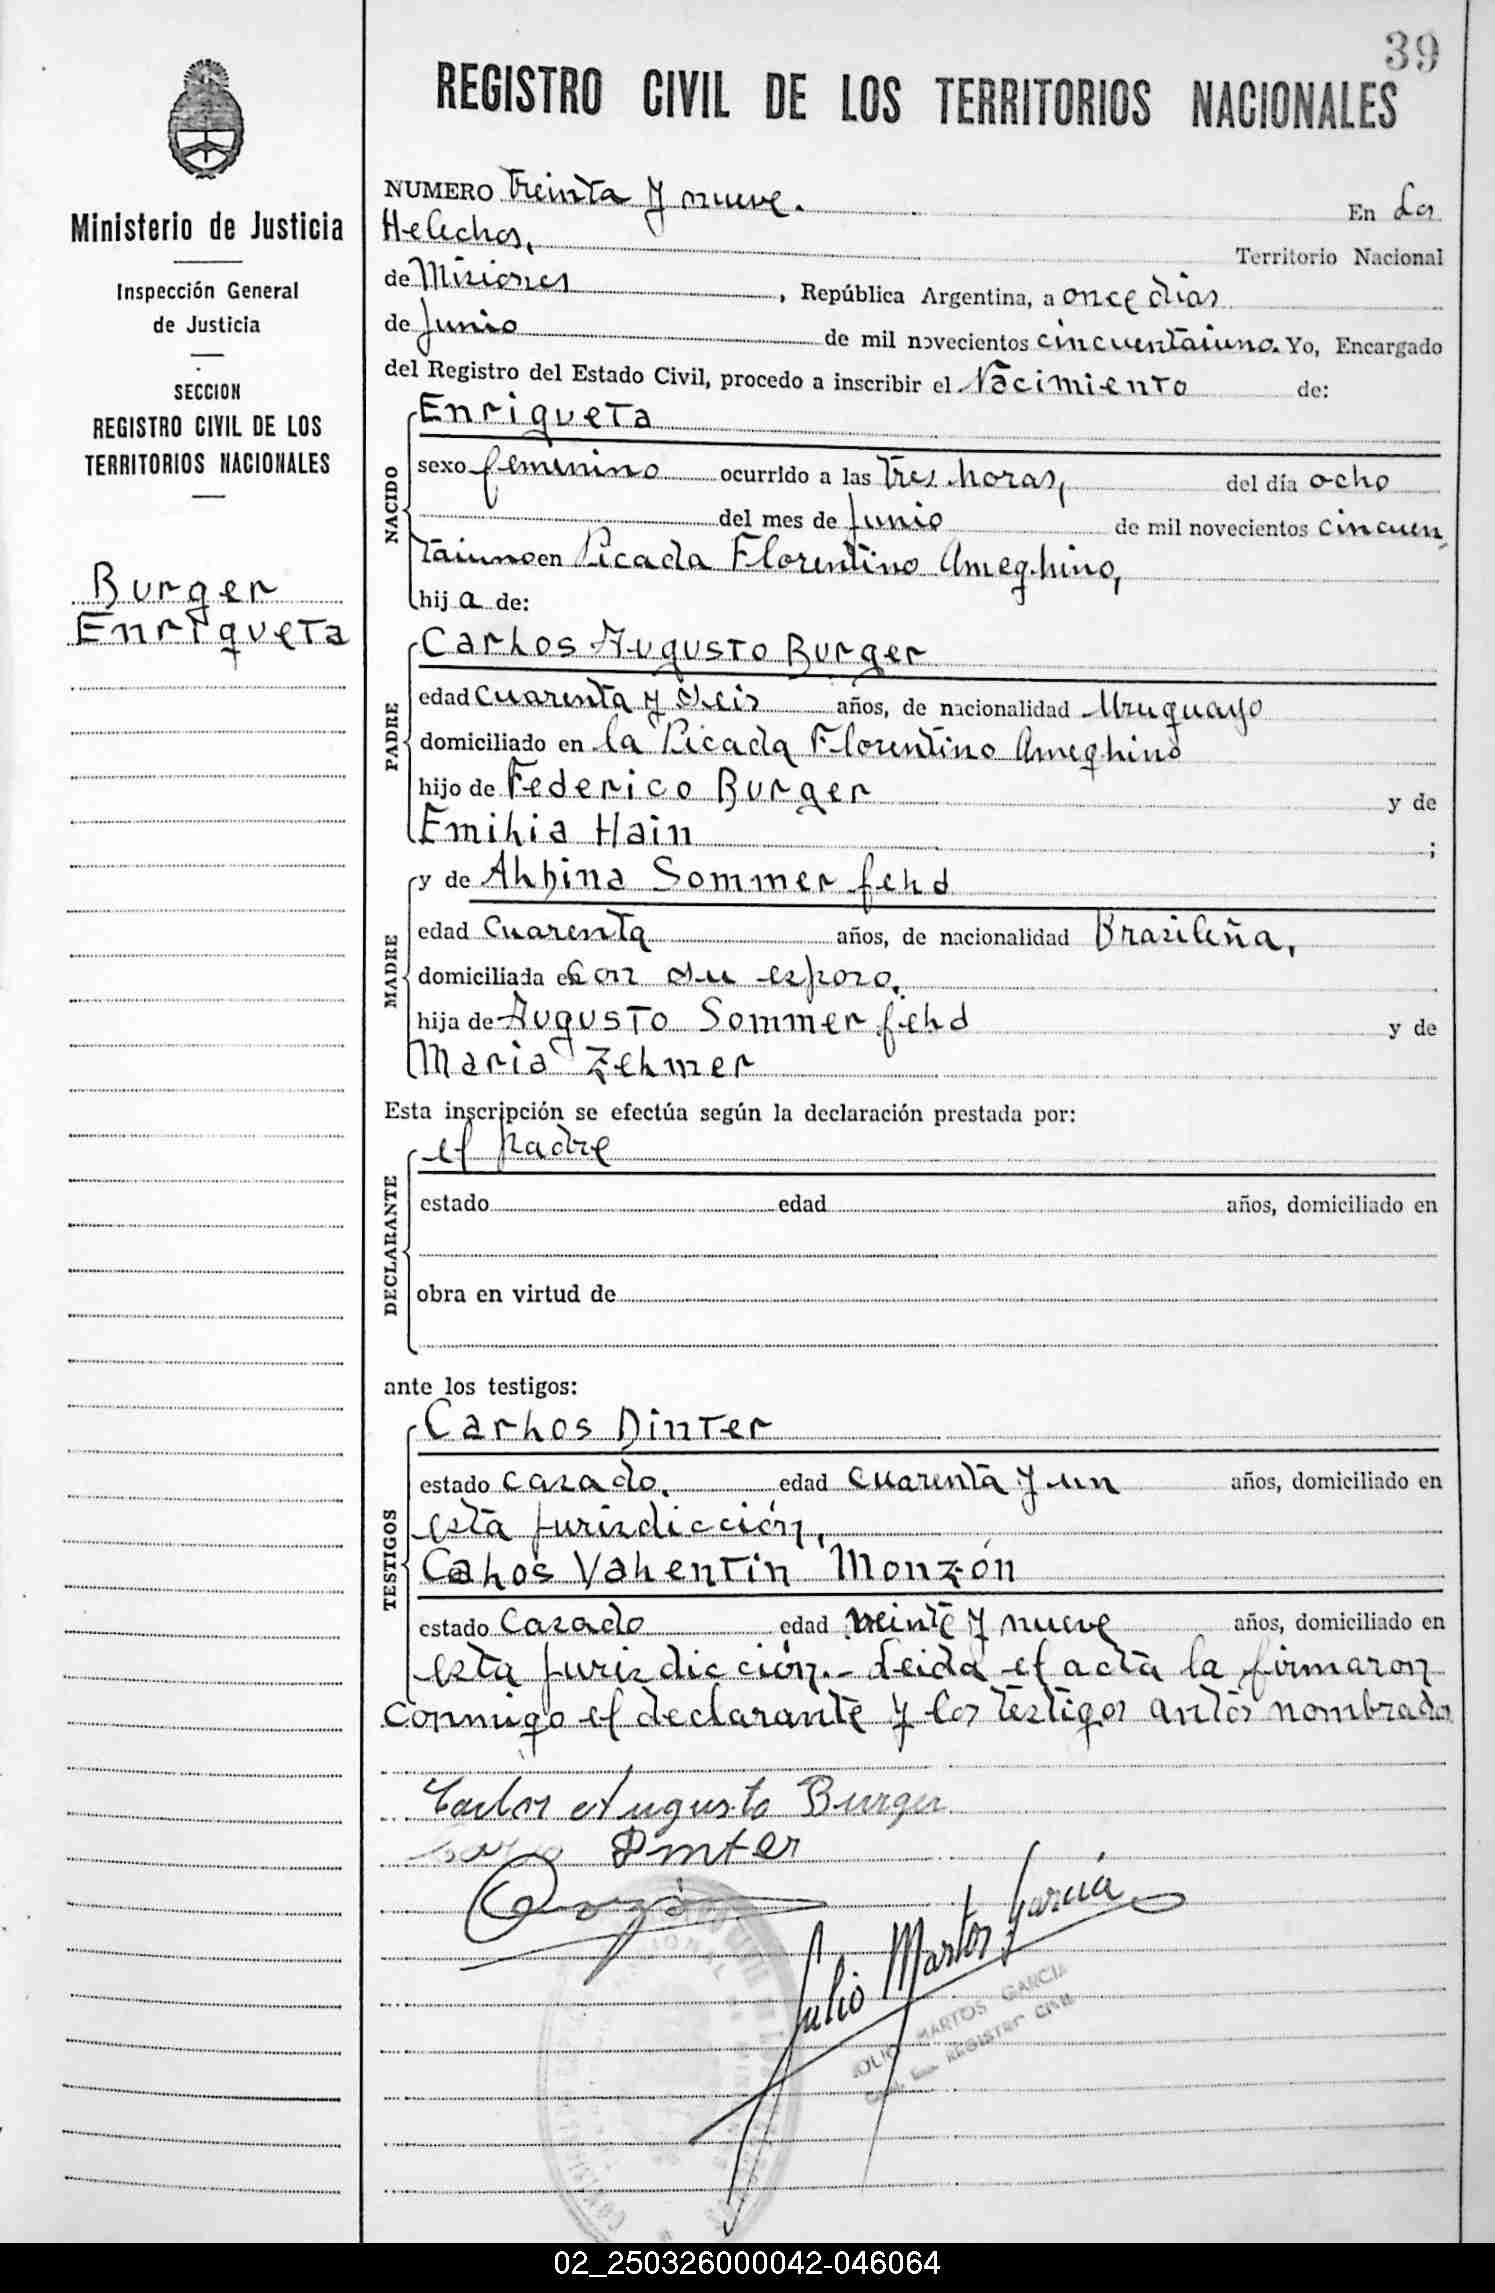 39
REGISTRO CIVIL DE LOS TERRITORIOS NACIONALES
Ministerio de Justicia
Inspección General
de Justicia
SECCION
REGISTRO CIVIL DE LOS
TERRITORIOS NACIONALES
Burger
Enriqueta
NUMERO treinta y nueve. En Los
Helechos, Territorio Nacional
de Misiones, República Argentina, a once dias
de Junio de mil novecientos cincuentaiuno. Yo, Encargado
del Registro del Estado Civil, procedo a inscribir el Nacimiento de:
NACIDO
Enriqueta
sexo femenino ocurrido a las tres horas, del día ocho
del mes de Junio de mil novecientos cincuen
taiuno en Picada Florentino Ameghino,
hija de:
PADRE
Carlos Augusto Burger
edad cuarenta y seis años, de nacionalidad Uruguayo
domiciliado en la Picada Florentino Ameghino
hijo de Federico Burger y de
Emilia Hain ;
MADRE
y de Albina Sommerfeld
edad cuarenta años, de nacionalidad Brasileña,
domiciliada en con su esposo.
hija de Augusto Sommerfeld y de
Maria Zelmer
Esta inscripción se efectúa según la declaración prestada por:
DECLARANTE
el padre
estado edad años, domiciliado en
obra en virtud de
ante los testigos:
TESTIGOS
Carlos Dinter
estado casado. edad cuarenta y un años, domiciliado en
esta jurisdicción,
Calos Valentin Monzón
estado casado edad veinte y nueve años, domiciliado en
esta jurisdicción.- Leida el acta la firmaron
conmigo el declarante y los testigos antes nombrados
Carlos Augusto Burger
Dinter
Julio Martos Garcia
JULIO MARTOS GARCIA
REGISTRO CIVIL
02_250326000042-046064